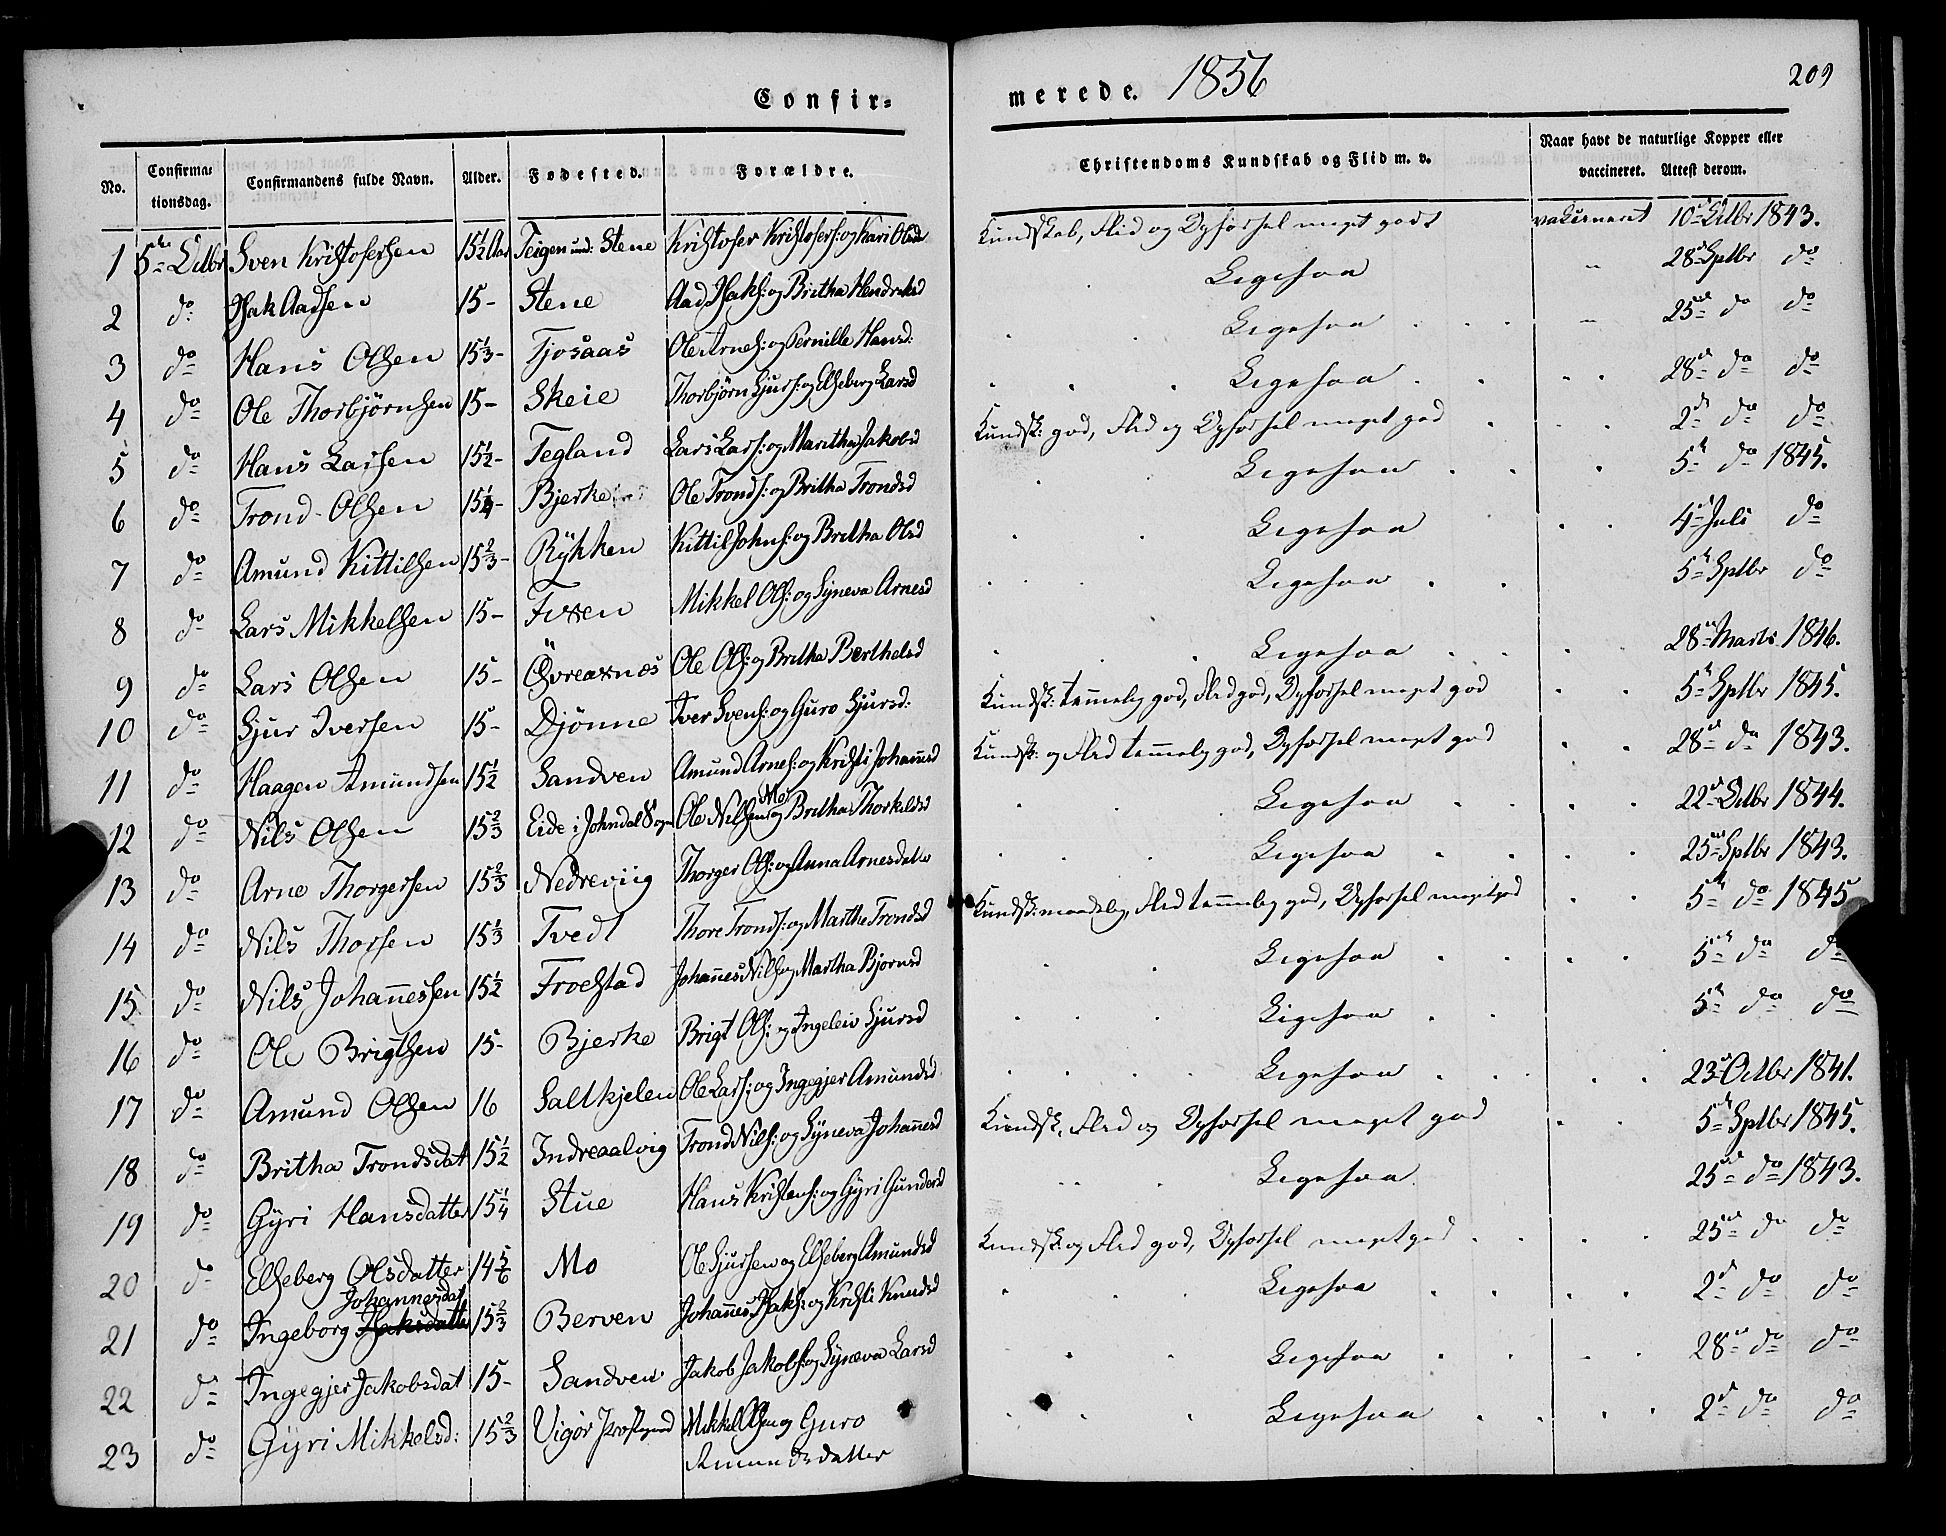 Confir=
merede. 1856
209
No. Confirma= tionsdag. Confirmandens fulde Navn. Alder. Fødested. Forældre. Christendoms Kundskab og Flid m. v. Naar havt de naturlige Kopper eller vaccineret. Attest derom.
1 5te Sven Kristofersen 15½ Aar Teigen und: Stene Kristofer Kristofers: og Kari Olsd Kundskab, Flid og Opførsel meget godt vakcineret 1843.
2 do Isak Aadsen 15- Stene Aad Isaks: og Britha Hendriksd Ligesaa " 28 Sptbr do
3 do Hans Olsen 15⅓- Tjosaas Ole Arnes: og Pernille Hansd: Ligesaa " 25 do do
4 do Ole Thorbjørnsen 15- Skeie Thorbjørn Sjurs: og Elseberg Larsd Ligesaa 28 do do
5 do Hans Larsen 15½- Tegland Lars Lars: og Maritha Jakobsd Kundsk: god, Flid og Opførsel meget god 2 do do
6 do Trond Olsen 15¼- Bjerke Ole Tronds: og Britha Trondsd Ligesaa 5 do 1845.
7 do Amund Kittilsen 15⅔- Rykken Kittil Johns: og Britha Olsd Ligesaa 4 Juli do
8 do Lars Mikkelsen 15- Mikkel Ols: og Syneva Arnesd Ligesaa 5 Sptbr do
9 do Lars Olsen 15- Ole Ols: og Britha Berthelsd Ligesaa 28 Marts 1846.
10 do Sjur Iversen 15- Djønne Iver Svens: og Guro Sjursd: Kundsk: temmelig god, Flid god, Opførsel meget god 5 Sptbr 1845.
11 do Haagen Amundsen 15½ Sandven Amund Arnes: og Kristi Johannesd Kundsk: og Flid temmelig god, Opførsel meget god 28 do 1843.
12 do Nils Olsen 15⅔ Eide i Jondal Sogn Ole Nilsen Mo og Britha Thorkildsd Ligesaa 22 1844.
13 do Arne Thorgersen 15⅔ Nedreviig Thorger Ols: og Anna Arnesdatter Ligesaa 25 Sptbr 1843.
14 do Nils Thorsen 15⅓ Tvedt Thore Tronds: og Marthe Trondsd Kundsk: maadelig, Flid temmelig god, Opførsel meget god 5 do 1845
15 do Nils Johannessen 15½ Froestad Johannes Nils og Martha Bjørnsd Ligesaa 5 do do
16 do Ole Brigtsen 15- Bjerke Brigt Ols: og Ingeleiv Sjursd Ligesaa 5 do do
17 do Amund Olsen 16 Saltkjelen Ole Lars: og Ingegjer Amundsd Ligesaa 23 Octbr 1841.
18 do Britha Trondsdat 15½ Indreaalvig Trond Nils: og Syneva Johannesd Kundsk, Flid og Opførsel meget god 5 Sptbr 1845.
19 do Gyri Hansdatter 15¼ Stue Hans Kristens: og Gyri Gundersd Ligesaa 25 do 1843.
20 do Elseberg Olsdatter 14⅚ Mo Ole Sjursen og Elseberg Amundsd Kundsk: og Flid god, Opførsel meget god 25 do do
21 do Ingeborg Isaksdatter Johannesdat 15⅔ Berven Johannes Isaks: og Kristi Knudsd Ligesaa 2 do do
22 do Ingegjer Jakobsdat 15- Sandven Jakob Jakobs: og Syneva Larsd Ligesaa 28 do do
23 do Gyri Mikkelsd: 15⅔ Vigør Præstegjeld Mikkel Olsen og Guro Amundsdatter Ligesaa 2 do do